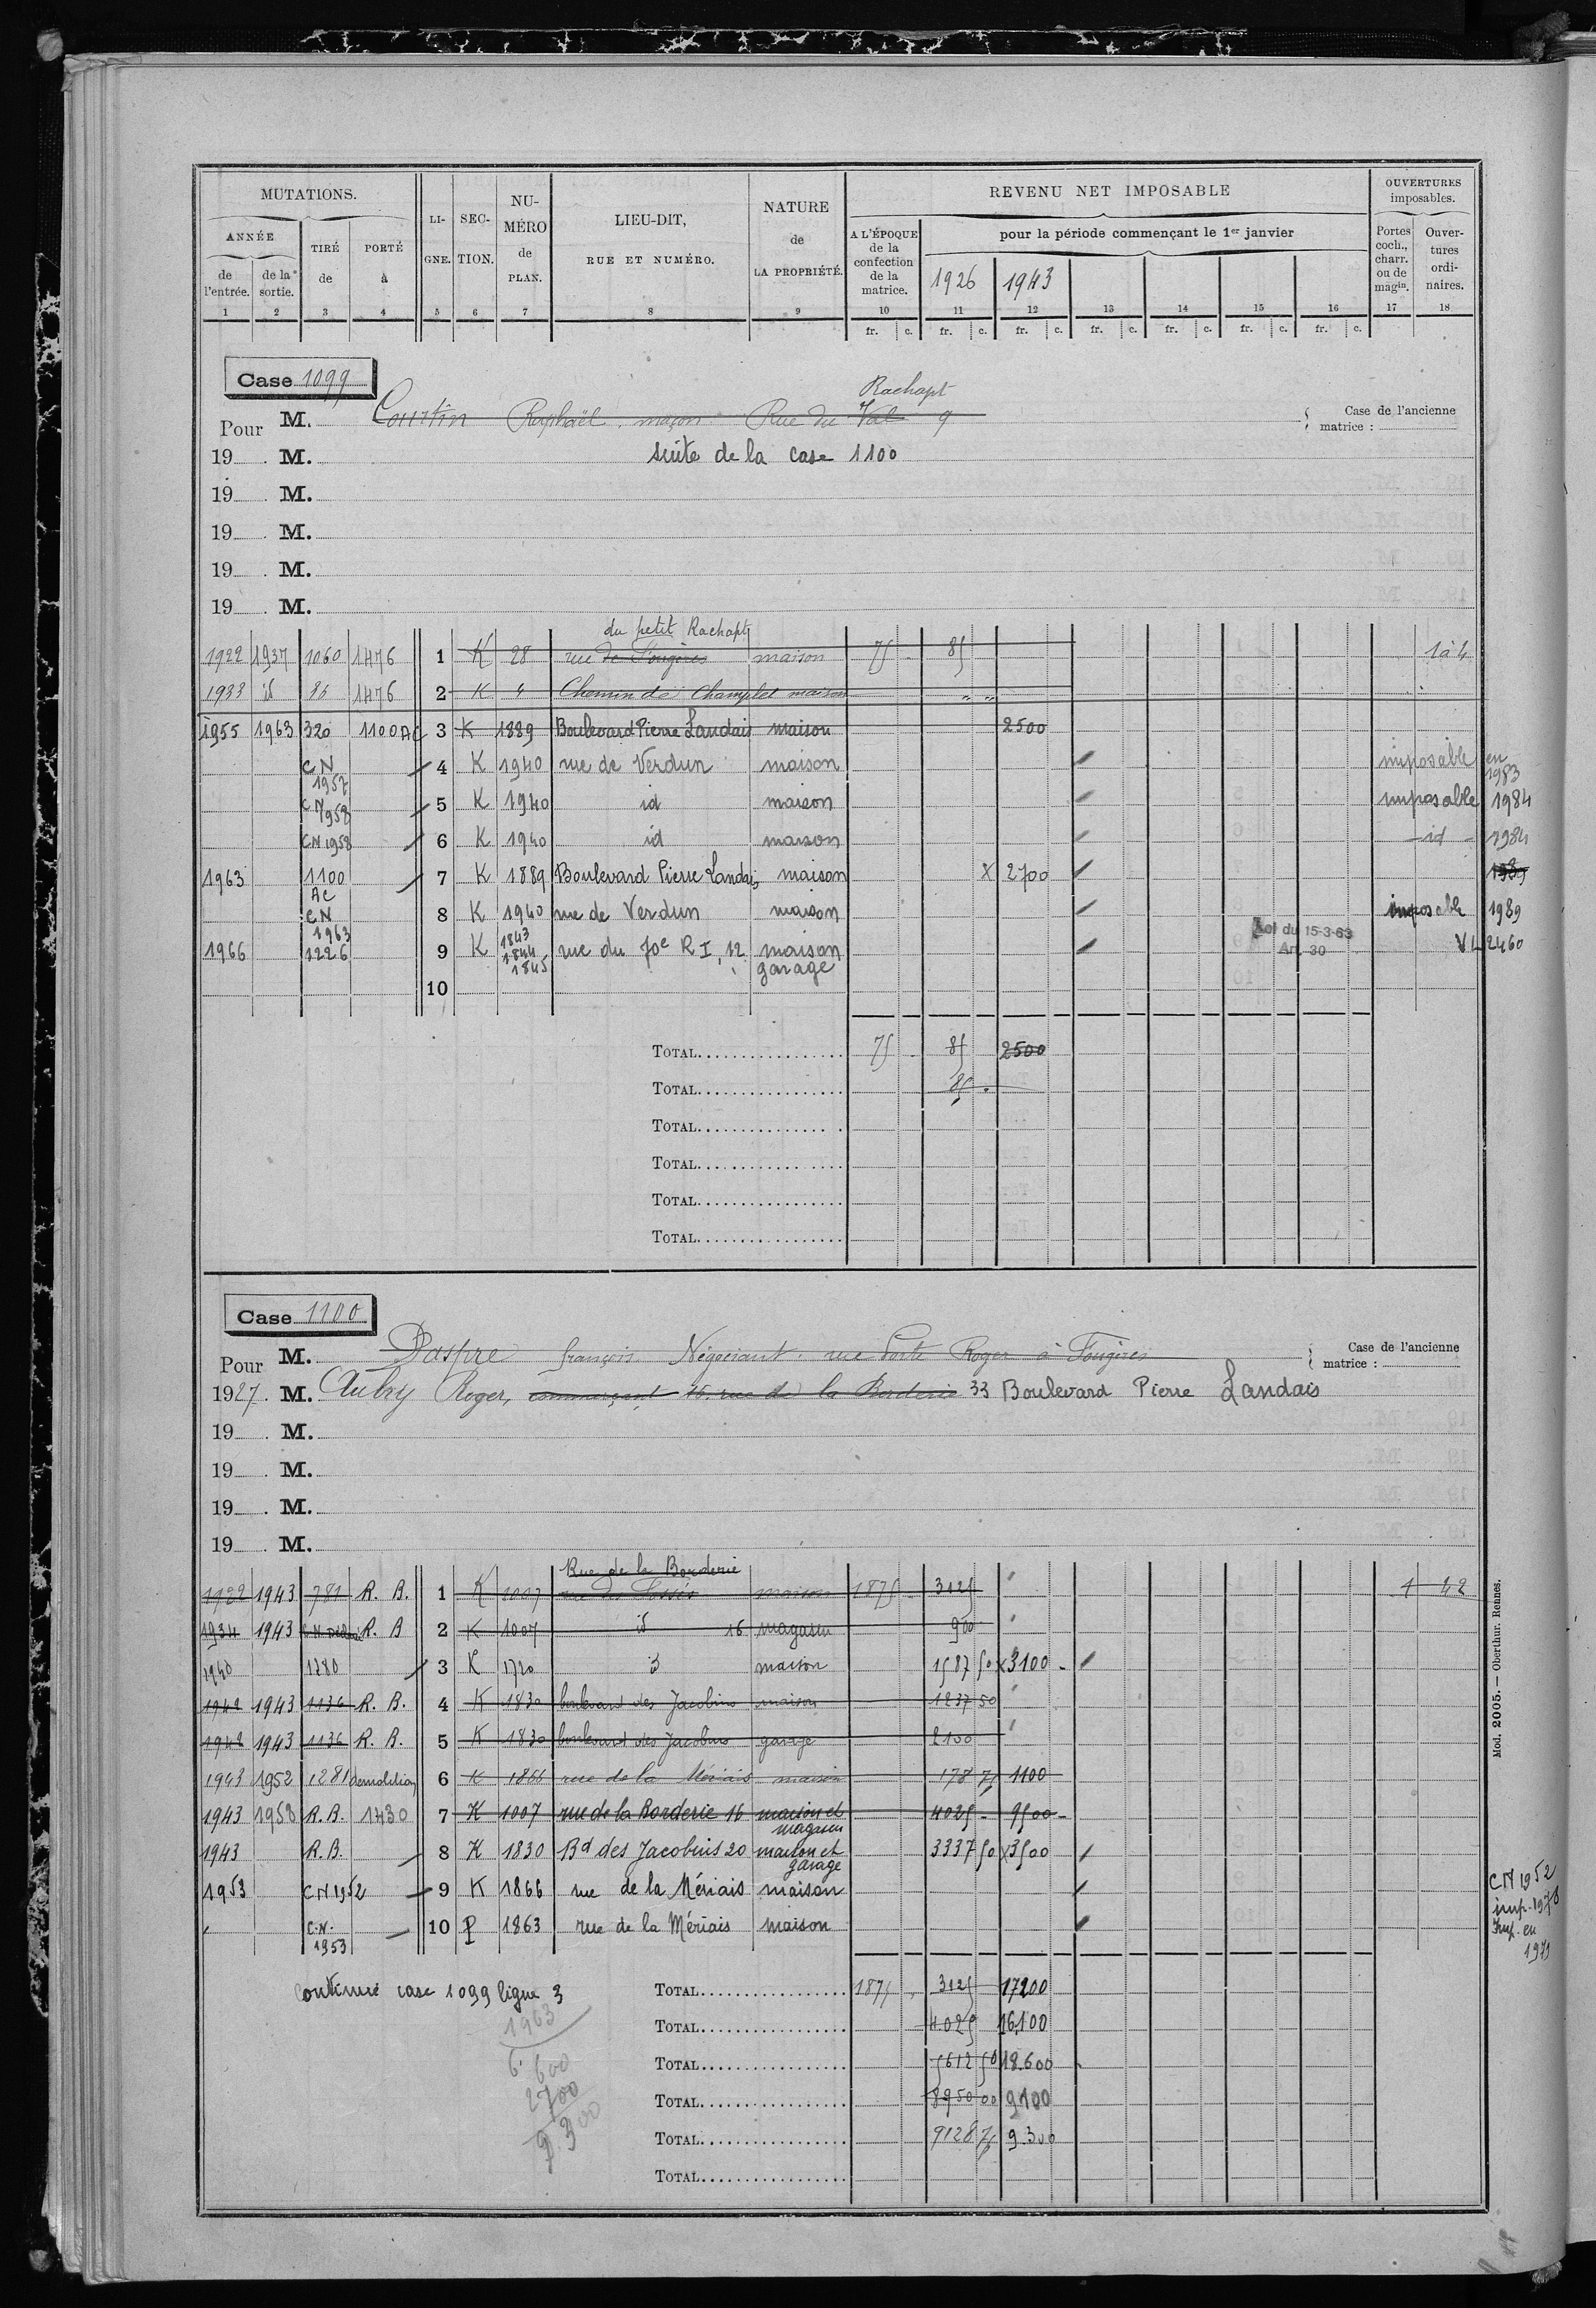 MUTATIONS.
ANNÉE
de l'entrée.
de la sortie.
TIRÉ de
PORTÉ à
LI-GNE.
SEC-TION.
NU-MÉRO de PLAN.
LIEU-DIT, RUE ET NUMÉRO.
NATURE de LA PROPRIÉTÉ.
REVENU NET IMPOSABLE
A L'ÉPOQUE de la confection de la matrice.
pour la période commençant le 1er janvier
1926 1943
OUVERTURES imposables.
Portes coch., charr. ou de magin.
Ouver-tures ordi-naires.
1 2 3 4 5 6 7 8 9 10 11 12 13 14 15 16 17 18
fr. c. fr. c. fr. c. fr. c. fr. c. fr. c. fr. c.
Case 1099
Rachapt
Pour M. Courtin Raphaël, maçon Rue du Val 9
Case de l'ancienne matrice :
19 . M. suite de la case 1100
19 . M.
19 . M.
19 . M.
19 . M.
du petit Rachapt
1922 1937 1060 1476 1 K 28 rue de Fougères maison 75 85 1 à 4
1933 id 86 1476 2 K " Chemin de Champlet maison " "
1955 1963 320 1100 AC 3 K 1889 Boulevard Pierre Landais maison 2500
CN 1957 4 K 1940 rue de Verdun maison imposable en 1983
CN 1958 5 K 1940 id maison imposable 1984
CN 1958 6 K 1940 id maison id 1984
1963 1100 AC 7 K 1889 Boulevard Pierre Landais maison X 2700 1989
CN 1963 8 K 1940 rue de Verdun maison imposable 1989
1966 1226 9 K 1843 1844 1845 rue du 70e R I, 12 maison garage Loi du 15-3-63 Art. 30 VL 2460
10
TOTAL 75 85 2500
TOTAL 85
TOTAL
TOTAL
TOTAL
TOTAL
Case 1100
Pour M. Daspre françois Négociant rue Porte Roger à Fougères
Case de l'ancienne matrice :
1927. M. Aubry Roger, commerçant 16, rue de la Borderie 33 Boulevard Pierre Landais
19 . M.
19 . M.
19 . M.
19 . M.
Rue de la Borderie
1922 1943 781 R. B. 1 K 1007 rue des Fossés maison 1875 3125 1 42
1934 1943 R. B 2 K 1007 id 16 magasin 900
1940 1280 3 K 1720 id maison 1587 50 X 3100
1942 1943 1136 R. B. 4 K 1830 boulevard des Jacobins maison 1237 50
1942 1943 1136 R. B. 5 K 1830 boulevard des Jacobins garage 2100
1943 1952 1281 demolition 6 K 1866 rue de la Mériais maison 178 75 1100
1943 1953 R. B. 1430 7 K 1007 rue de la Borderie 16 maison et magasin 4025 9500
1943 R. B. 8 K 1830 Bd des Jacobins 20 maison et garage 3337 50 X 3500
1953 CN 1952 9 K 1866 rue de la Mériais maison CN 1952 imp. 1978
C.N. 1953 10 P 1863 rue de la Mériais maison Imp. en 1979
Continué case 1099 ligne 3
TOTAL 1875 3125 17200
TOTAL 4025 16,100
TOTAL 5612 50 18.600
TOTAL 8950 00 9100
TOTAL 9128 75 9.300
TOTAL
1963
6.600
2700
9.300
Mod. 2005. — Oberthur. Rennes.